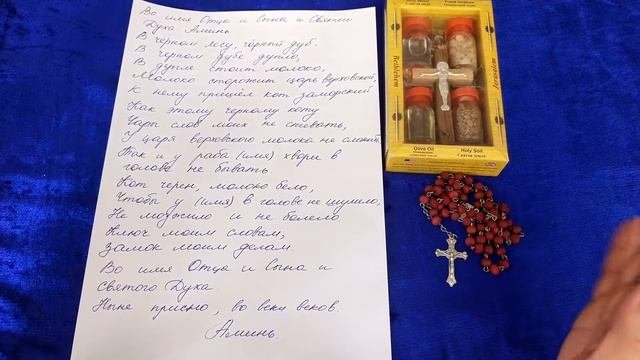 Во имя Отца и Сына и Святого
Духа. Аминь.
В черном лесу, чёрный дуб.
В черном дубе дупло,
В дупле стоит молоко,
Молоко сторожит царь верховский,
К нему пришел кот заморский
Как этому черному коту
Чары слов моих не спивать,
У царя верховского молока не
Так и у раба (имя) хвори в
голове не бывать
Кот черен, молоко бело,
Чтобы у (имя) в голове не шумело,
Не и не болело
Ключ моим словам,
Замок моим делам.
Во имя Отца и Сына и
Святого Духа.
Ныне присно, во веки веков.
Аминь.
Bethlehem
Jerusalem
Olive Oil
Holy Soil